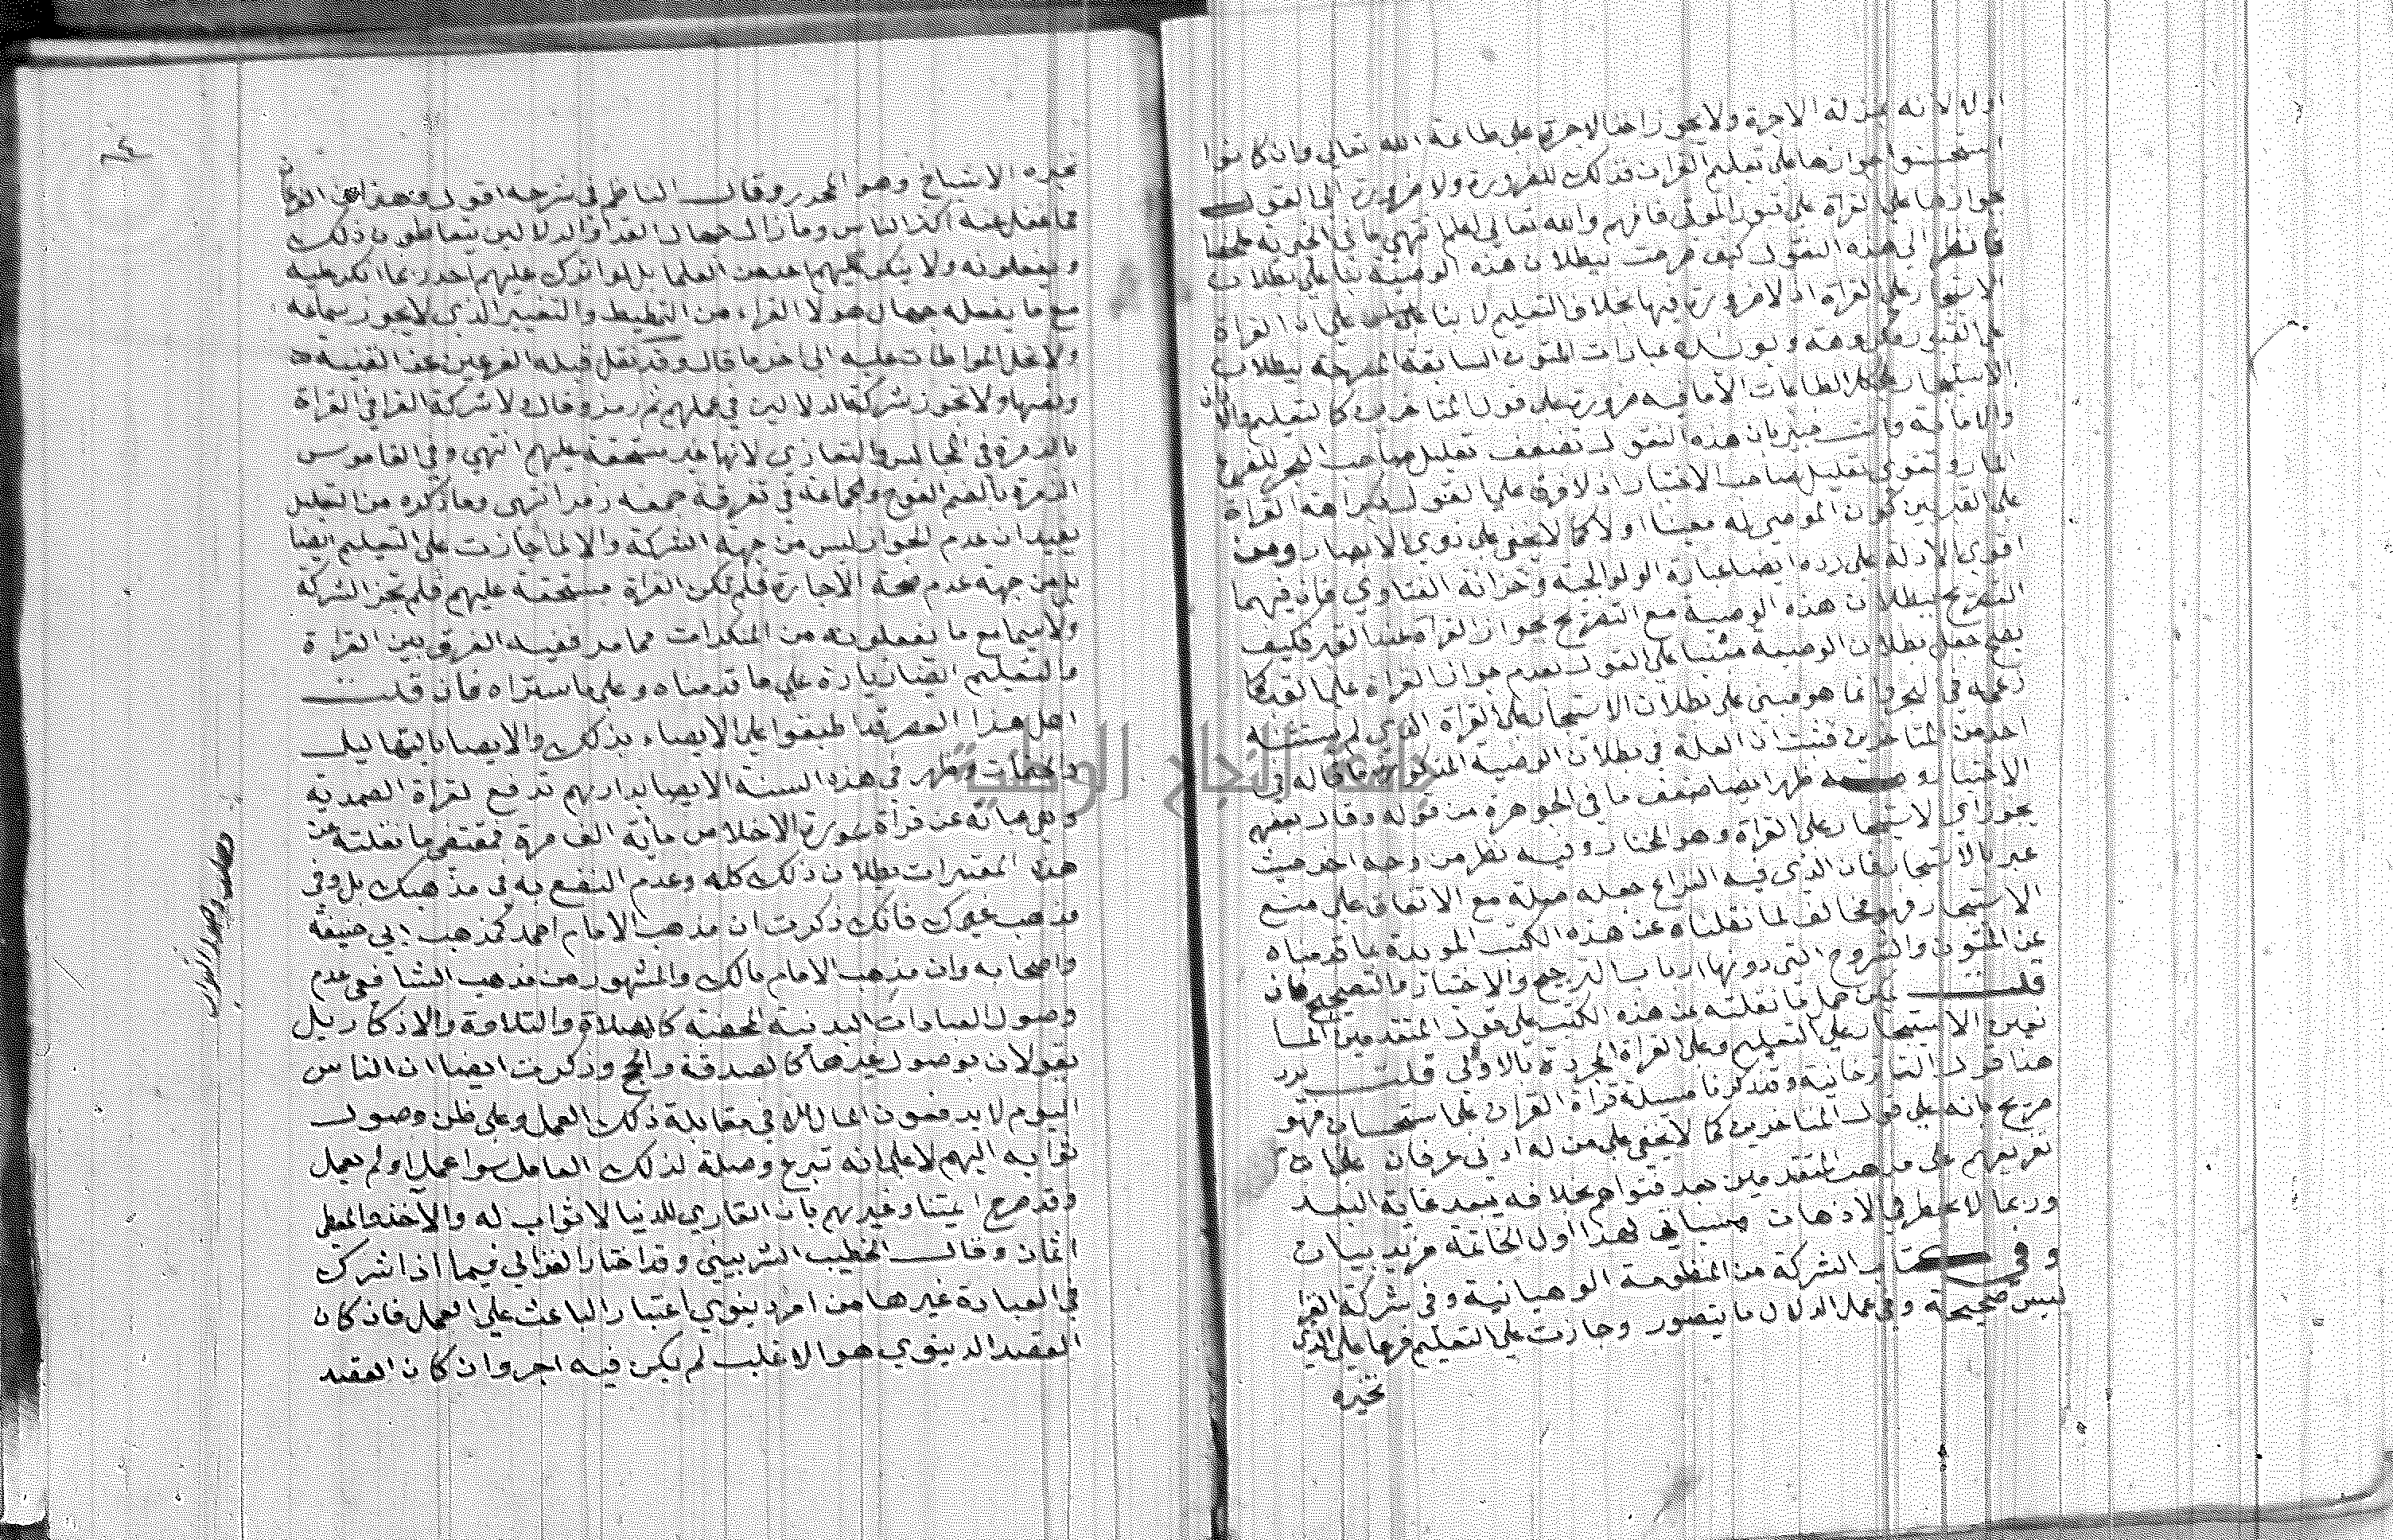 اوله لانه بمنزلة الاجرة ولا يجوز اخذ الاجرة على طاعة الله تعالي وان كانوا
استحسنوا جوازها على تعليم القران فذلك للضرورة ولا ضرورة الى القول
بجوازها على القراة على قبور الموتى فافهم والله تعالى اعلم انتهي ما في الخيرية ملخصا
فانظر الى هذه النقول كيف صرحت ببطلان هذه الوصية بنا على بطلان
الاستيجار على القراة اذ لا ضرورة فيها بخلاف التعليم لا بنا على ان القراة
على القبور مكروهة ويويده عبارات المتون السابقة المصرحة ببطلان
الاستيجار على الطاعات الا ما فيه ضرورة على قول المتاخرين كالتعليم والاذان
والامامة وانت خبير بان هذه النقول تضعف تعليل صاحب البحر للفرع
المار وتقوي تعليل صاحب الاختيار اذ لا فرق على القول بكراهة القراة
على القبر بين كون الموصى له معينا اولا كما لا يخفى على ذوي الابصار ومن
اقوى الادلة على رده ايضا عبارة الولوالجية وخزانة الفتاوي فان فيهما
التصريح ببطلان هذه الوصية مع التصريح بجواز القراة عند القبر فكيف
يصح جعل بطلان الوصية مبنيا على القول بعدم جواز القراة على القبر كما
زعمه في البحر وانما هو مبني على بطلان الاستيجار على القراة الذي لم يستثنه
احد من المتاخرين فثبت ان العلة في بطلان الوصية المذكورة ما قاله في
الاختيار و ظهر ايضا ضعف ما في الجوهرة من قوله وقال بعضهم
يجوز اي الاستيجار على القراة وهو المختار وفيه نظر من وجه اخر حيث
عبر بالاستيجار فان الذي فيه النزاع جعله صلة مع الاتفاق على منع
الاستيجار فهو مخالف لما نقلناه عن هذه الكتب المويدة بما قدمناه
عن المتون والشروح التي دونها ارباب الترجيح والاختيار والتصحيح فان
قلت يمكن حمل ما نقلته عن هذه الكتب على قول المتقدمين الما
نعين الاستيجار على التعليم وعلى القراة المجردة بالاولى قلت يرد
هذا قول التتارخانية وقد ذكرنا مسيلة قراة القران على استحسان فهو
صريح بانه على قول المتاخرين كما لا يخفى على من له ادنى عرفان على ان
تفريعهم على مذهب المتقدمين بعد فتواهم بخلافه يبعد غاية البعد
وربما لا يخطر في الاذهان وسياتي لهذا اول الخاتمة مزيد بيان
وفي كتاب الشركة من المنظومة الوهبانية وفي شركة القرا
ليس صحيحة وفي عمل الدلال ما يتصور وجازت على التعليم فرعا على الذي
تخيره
تخيره الاشياخ وهو المحرر وقال الناظم في شرحه اقول وهذان الفرعان
مما غفل عنه اكثر الناس وما زال جهال القراء والدلالين يتعاطون ذلك
ويفعلونه ولا ينكر عليهم احد من العلما بل لو انكر عليهم احد ربما انكر عليه
مع ما يفعله جهال هولا القراء من التمطيط والتغيير الذي لا يجوز سماعه
ولا تحل المواطات عليه الى اخر ما قال وقد نقل قبله الفرعين عن القنية
ونصها ولا تجوز شركة الدلالين في عملهم ثم رمز وقال ولا شركة القرا في القراة
بالزمزمة في المجالس والتعازي لانها غير مستحقة عليهم انتهي وفي القاموس
الزمرة بالضم الفوج والجماعة في تفرقة جمعه زمر انتهى وما ذكره من التعليل
يفيد ان عدم الجواز ليس من جهة الشركة والا لما جازت على التعليم ايضا
بل من جهة عدم صحة الاجارة فلم تكن القراة مستحقة عليهم فلم تجز الشركة
ولا سيما مع ما يفعلونه من المنكرات مما مر ففيه الفرق بين القراة
والتعليم ايضا زيادة على ما قدمناه وعلى ما ستراه فان قلت
اهل هذا العصر قد اطبقوا على الايصاء بذلك والايصا بالتهاليل
والختمات وظهر في هذه السنة الايصا بدارهم تدفع لقراة الصمدية
وهي عبارة عن قراة سورة الاخلاص ماية الف مرة فمقتضى ما نقلته عن
هذه المعتبرات بطلان ذلك كله وعدم النفع به في مذهبك بل وفي
مذهب غيرك فانك ذكرت ان مذهب الامام احمد كمذهب ابي حنيفة
واصحابه وان مذهب الامام مالك والمشهور من مذهب الشافعي عدم
وصول العبادات البدنية المحضة كالصلاة والتلاوة والاذكار بل
يقولان بوصول غيرها كالصدقة والحج وذكرت ايضا ان الناس
اليوم لا يدفعون المال الا في مقابلة ذلك العمل وعلى ظن وصول
ثوابه اليهم لا على انه تبرع وصلة لذلك العامل سوا عمل او لم يعمل
وقد صرح ايمتنا وغيرهم بان القاري للدنيا لا ثواب له والاخذ والمعطي
اثمان وقال الخطيب الشربيني وقد اختار الغزالي فيما اذا شرك
في العبادة غيرها من امر دينوي اعتبار الباعث على العمل فان كان
القصد الدينوي هو الاغلب لم يكن فيه اجر وان كان القصد
جامعة النجاح الوطنية